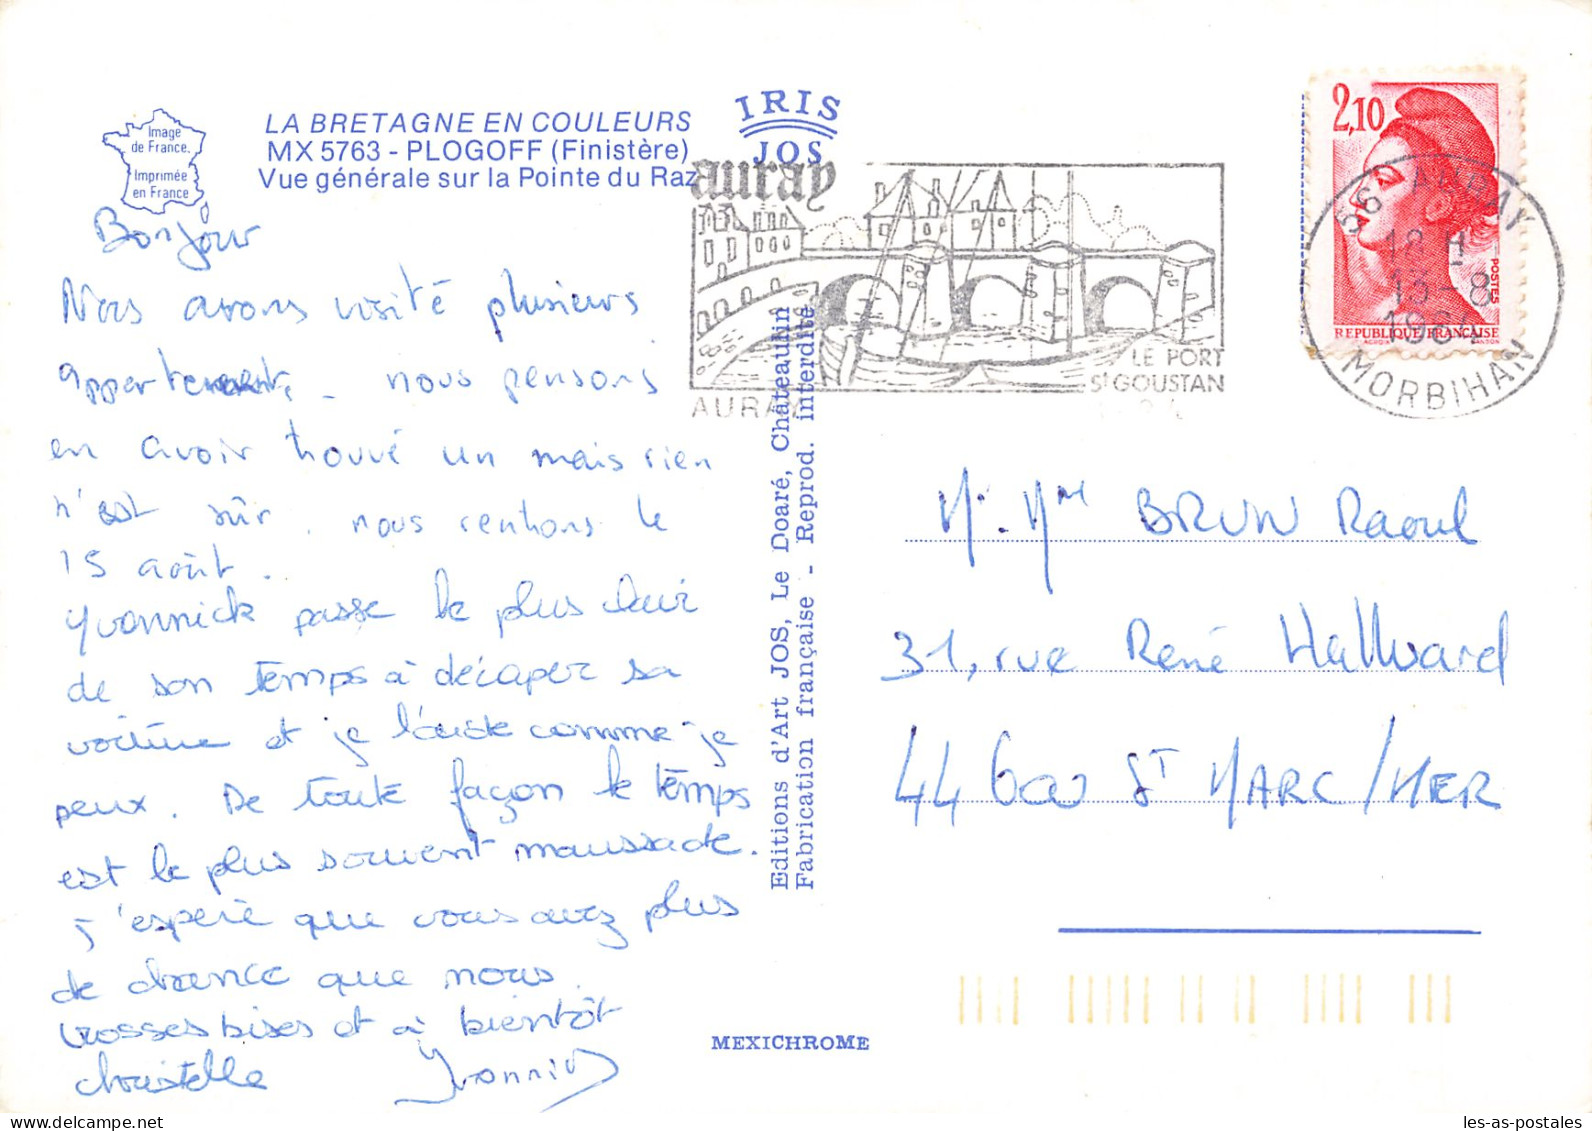 Image
de France.
Imprimée
en France
LA BRETAGNE EN COULEURS
MX 5763 - PLOGOFF (Finistère)
Vue générale sur la Pointe du Raz
IRIS
JOS
Bonjour
Nous avons visité plusieurs
appartements, nous pensons
en avoir trouvé un mais rien
n'est sûr. nous rentrons le
15 août.
Yvonnick passe le plus clair
de son temps à décaper sa
voiture et je l'aide comme je
peux. De toute façon le temps
est le plus souvent maussade.
J'espère que vous avez plus
de chance que nous.
Grosses bises et à bientôt
Christelle Yvonnick
Editions d'Art JOS, Le Doaré, Châteaulin
Fabrication française - Reprod. interdite
MEXICHROME
auray
LE PORT
St GOUSTAN
AURAY
2,10
POSTES
REPUBLIQUE FRANÇAISE
56 AURAY
18 H
13-8
MORBIHAN
Mr. Mme BRUN Raoul
31, rue René Hallward
44600 ST MARC/MER
les-as-postales.com